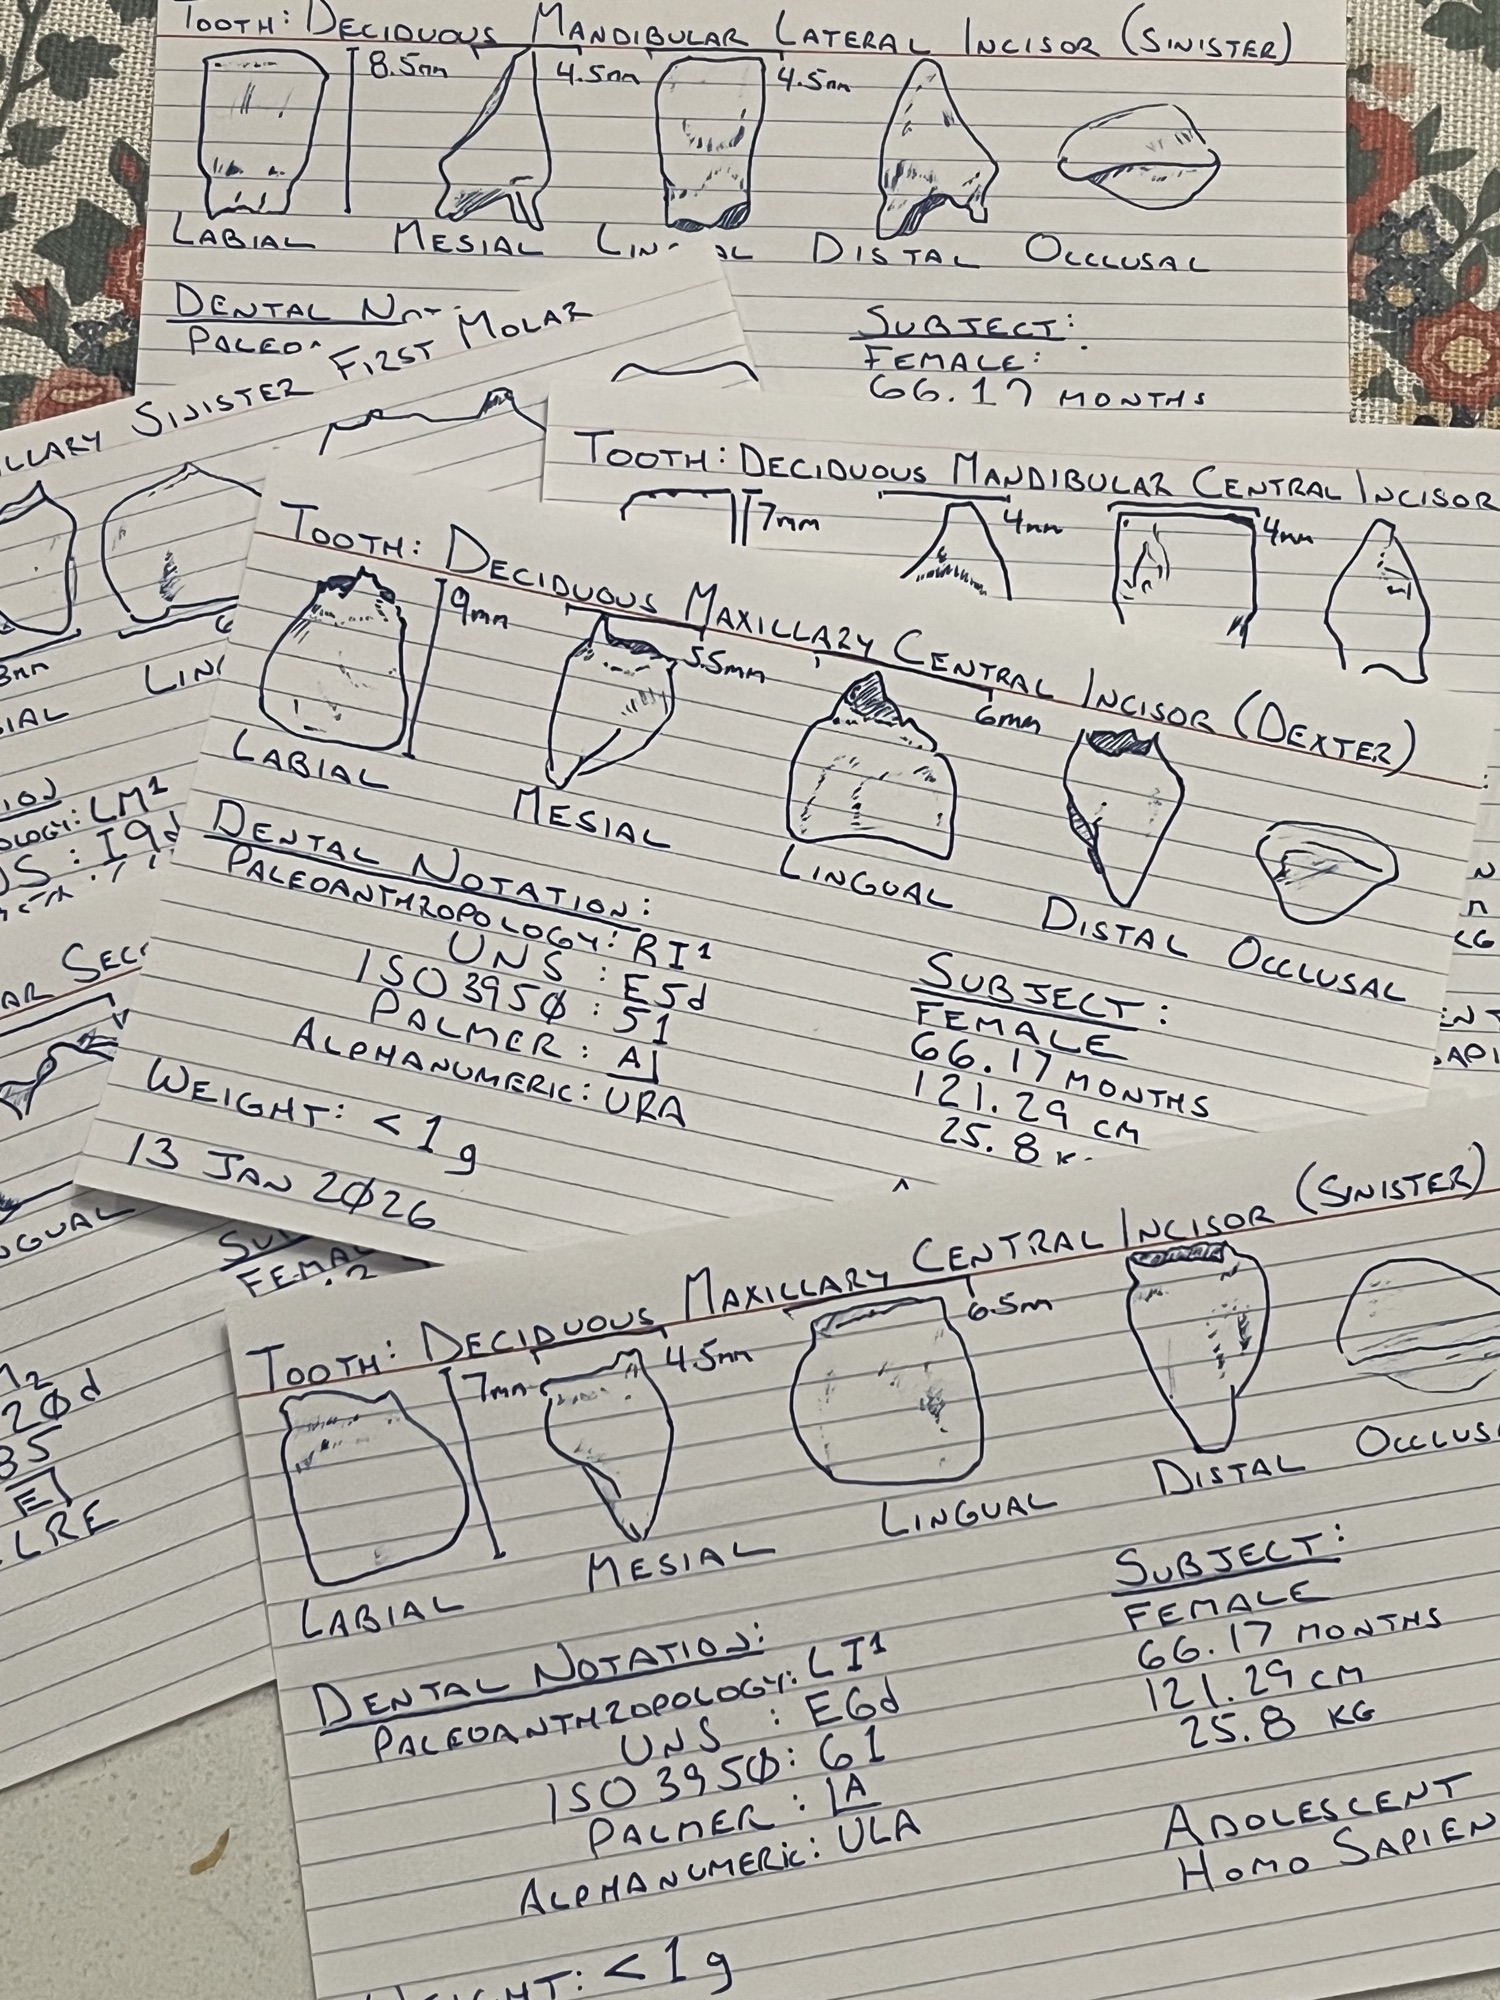 TOOTH: DECIDUOUS MANDIBULAR LATERAL INCISOR (SINISTER)
8.5mm
4.5mm
4.5mm
LABIAL MESIAL LIN AL DISTAL OCCLUSAL
DENTAL NOT
PALEO
SUBJECT:
FEMALE:
66.17 MONTHS
ILLARY SINISTER FIRST MOLAR
3mm
LIN
IAL
ION
OLOGY: LM¹
S : I9d
TOOTH: DECIDUOUS MANDIBULAR CENTRAL INCISOR
7mm
4mm
4mm
TOOTH: DECIDUOUS MAXILLARY CENTRAL INCISOR (DEXTER)
9mm
5.5mm
6mm
LABIAL MESIAL LINGUAL DISTAL OCCLUSAL
DENTAL NOTATION:
PALEOANTHROPOLOGY: RI¹
UNS : E5d
ISO 395Ø : 51
PALMER : A⅃
ALPHANUMERIC: URA
WEIGHT: <1g
13 JAN 2Ø26
SUBJECT:
FEMALE
66.17 MONTHS
121.29 CM
25.8 K
KG
ENT
SAPI
AR SEC
NGUAL
SU
FEMA
M2
2Ø d
85
E
LRE
TOOTH: DECIDUOUS MAXILLARY CENTRAL INCISOR (SINISTER)
7mm
4.5mm
6.5mm
LABIAL MESIAL LINGUAL DISTAL OCCLUS
DENTAL NOTATION:
PALEOANTHROPOLOGY: LI¹
UNS : E6d
ISO 395Ø: 61
PALMER : |A
ALPHANUMERIC: ULA
SUBJECT:
FEMALE
66.17 MONTHS
121.29 CM
25.8 KG
ADOLESCENT
HOMO SAPIEN
WEIGHT: <1g